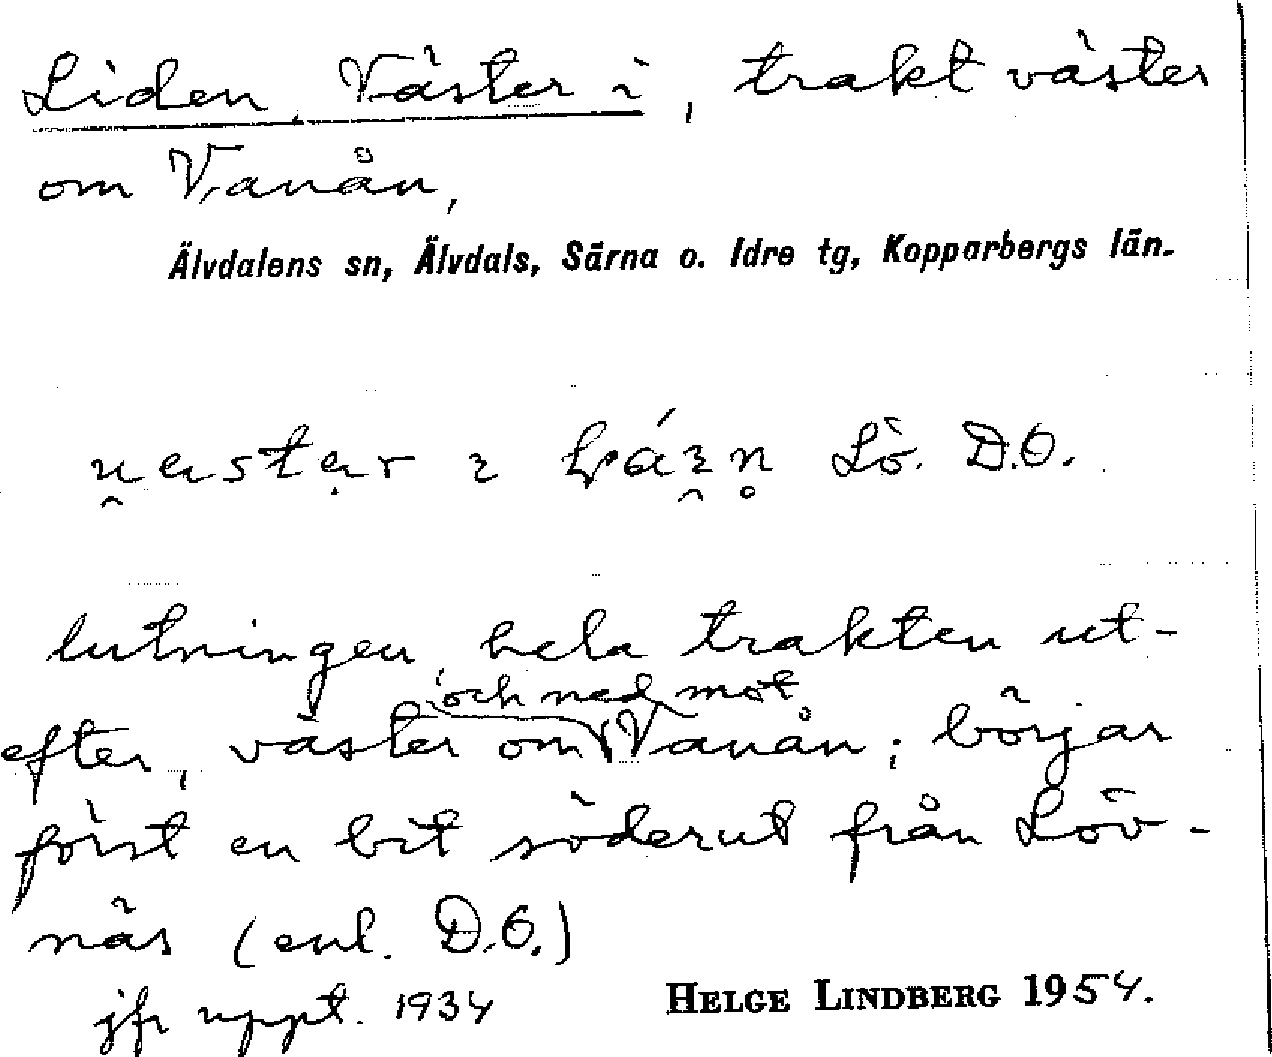 Liden, Väster i, trakt väster
om Vanån,
Älvdalens sn, Älvdals, Särna o. Idre tg, Kopparbergs län.
Lö. D.O.
lutningen, hela trakten ut-
och ned mot
efter, väster om Vanån; börjar
först en bit söderut från Löv-
näs (enl. D.O.)
jfr uppt. 1934
HELGE LINDBERG 1954.